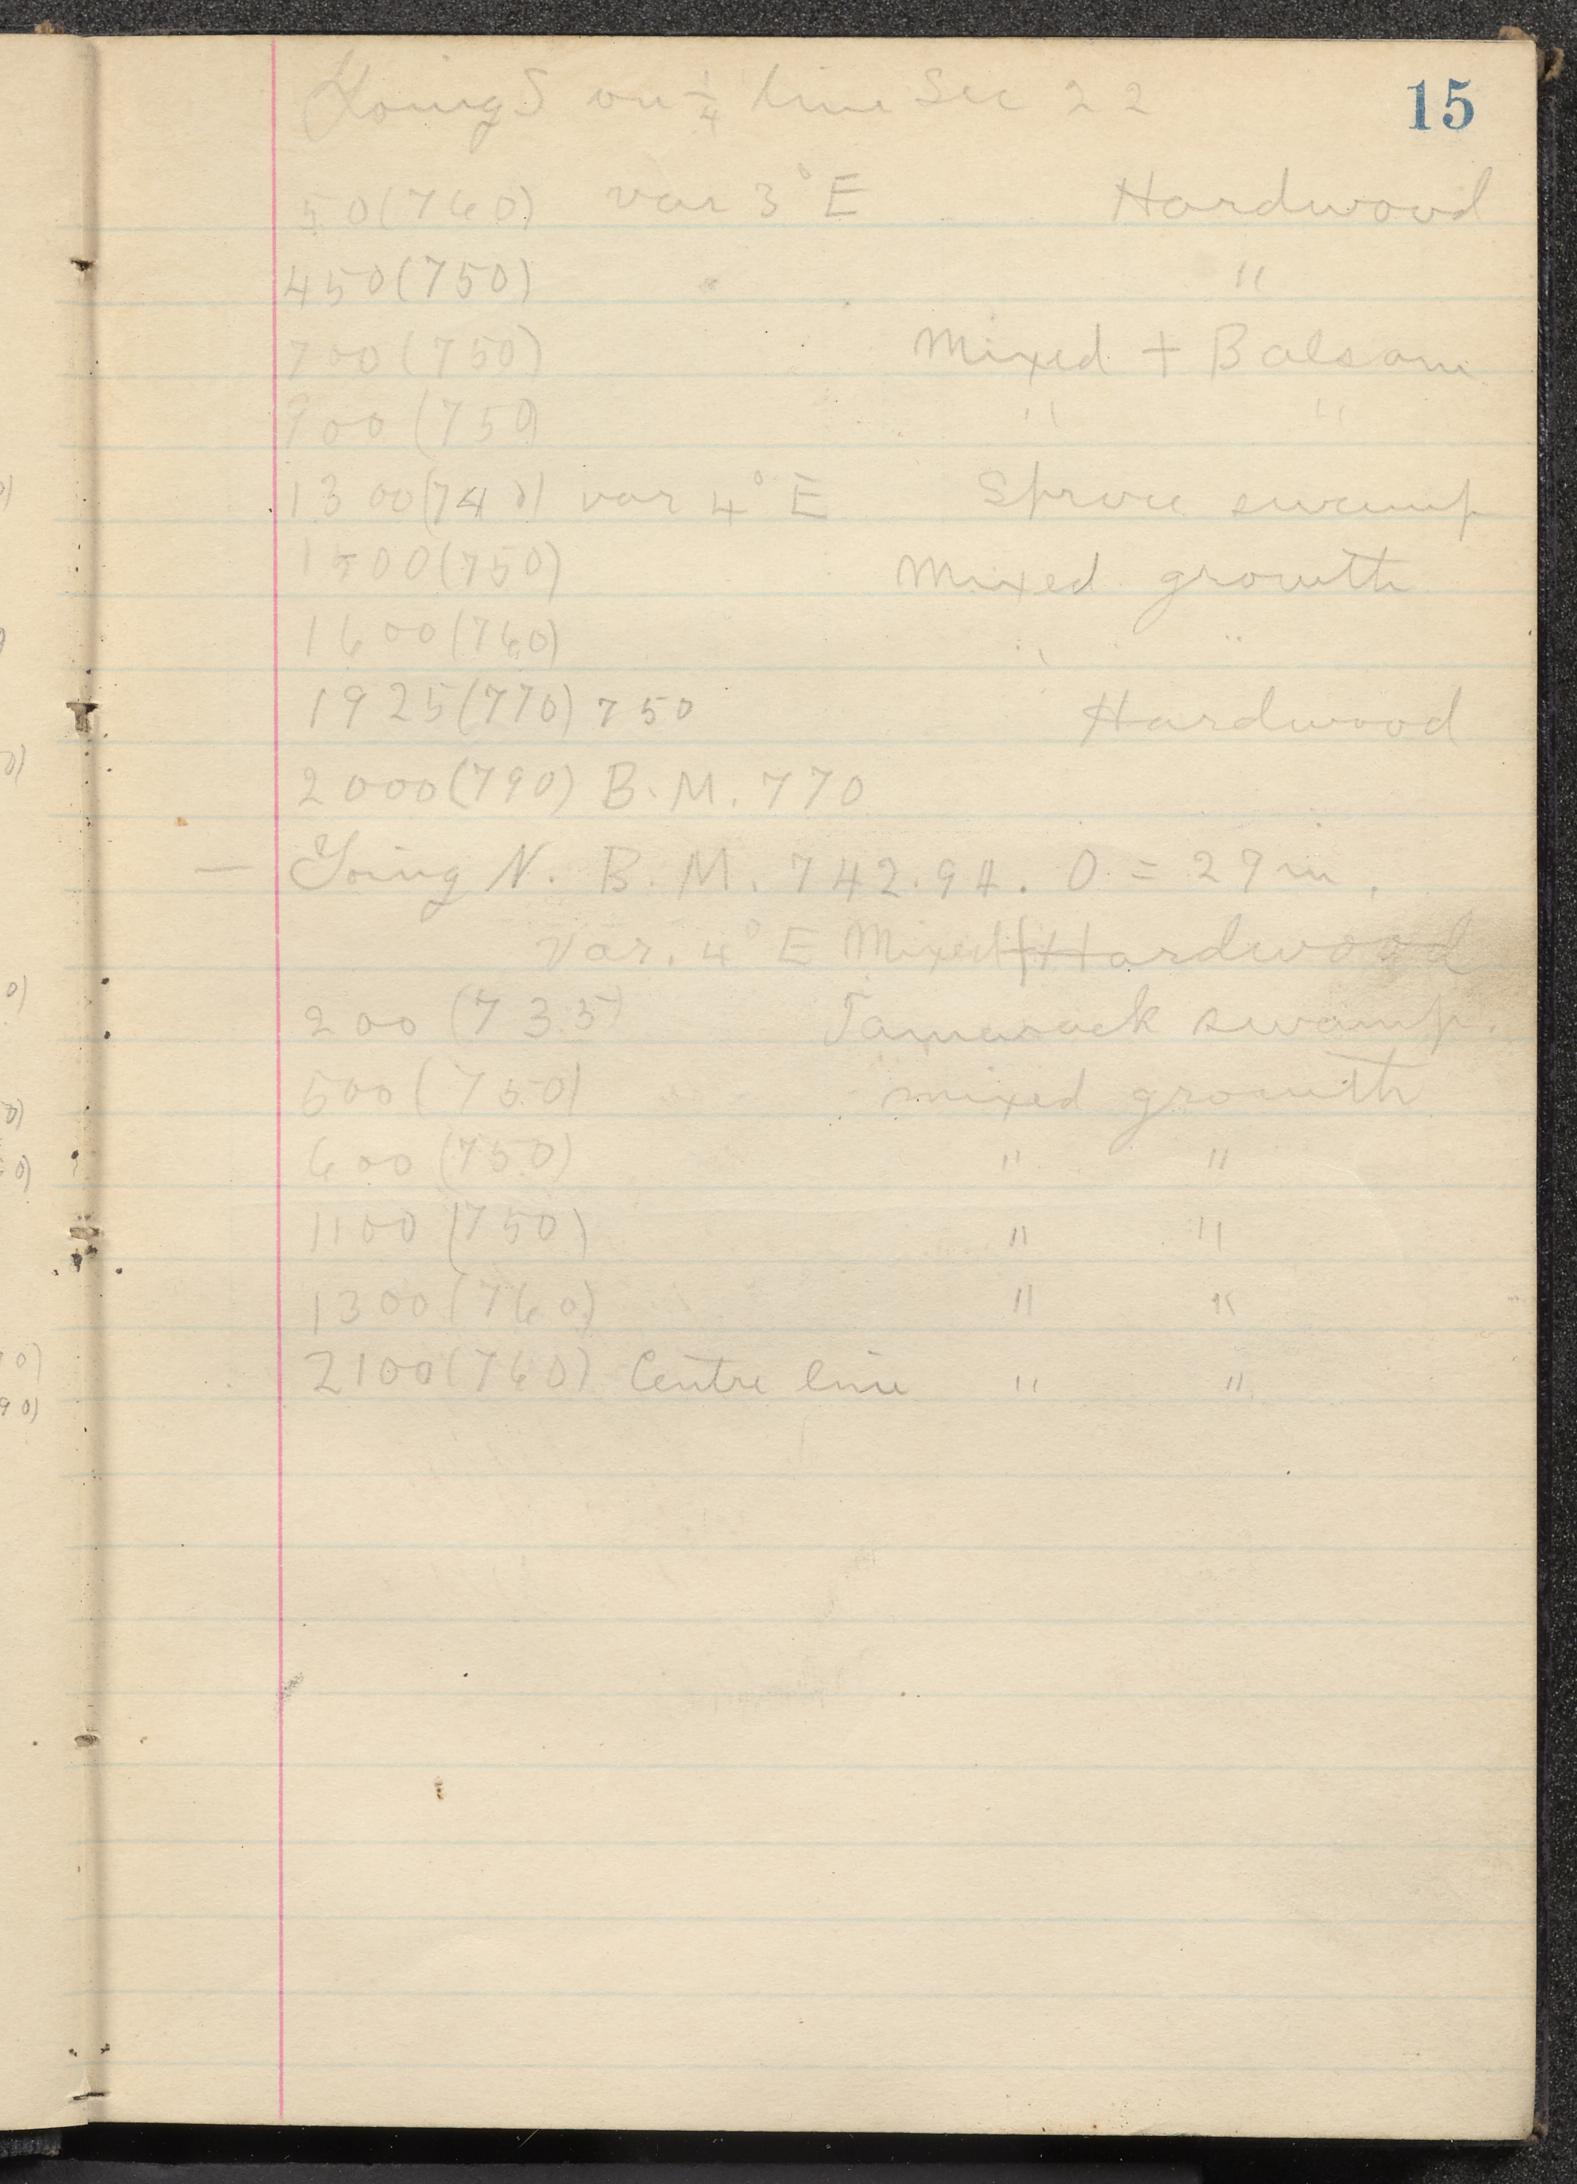 15
Going S on 1/4 line Sec 22
50(760) var 3° E Hardwood
450(750) "
700(750) Mixed + Balsam
900(750) " "
1300(740) var 4° E Spruce swamp
1500(750) Mixed growth
1600(760) " "
1925(770) 750 Hardwood
2000(790) B.M. 770
— Going N. B.M. 742.94. 0 = 29 in.
Var. 4° E Mixed + Hardwood
200 (735) Tamarack swamp.
500 (750) mixed growth
600 (750) " "
1100 (750) " "
1300 (760) " "
2100(760) Centre line " "